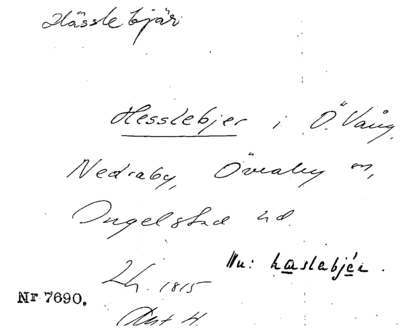 Hässlebjär
Hesslebjer i Ö. Vång,
Nedraby, Övraby sn,
Ingelstad hd.
Uu: haslabjér.
Lh. 1815
Nr 7690.
Akt 4.